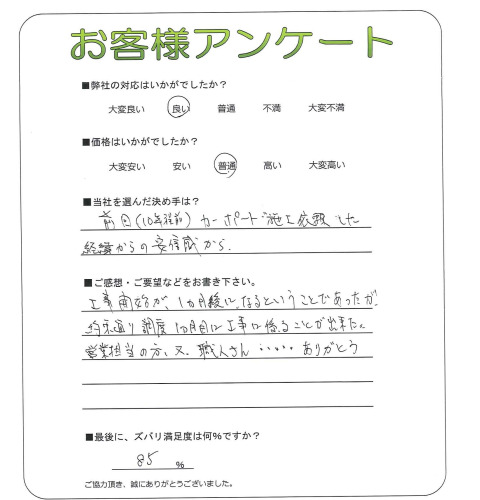 お客様アンケート
■弊社の対応はいかがでしたか？
大変良い 良い 普通 不満 大変不満
■価格はいかがでしたか？
大変安い 安い 普通 高い 大変高い
■当社を選んだ決め手は？
前回(10年程前) カーポート施工依頼した
経緯からの安信感から.
■ご感想・ご要望などをお書き下さい。
工事開始が、1ヵ月後になるということであったが
約束通り調度1ヵ月目に工事に係ることが出来た。
営業担当の方、又、職人さん ..... ありがとう
■最後に、ズバリ満足度は何％ですか？
85 ％
ご協力頂き、誠にありがとうございました。